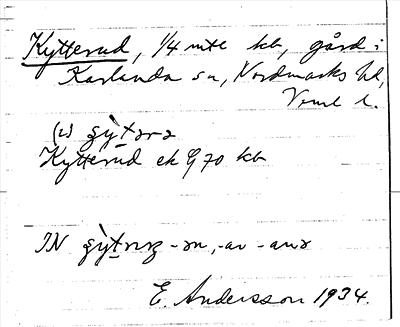 Kytterud, 1/4 mtl kb, gård i
Karlanda sn, Nordmarks hd,
Vrml l.
(2) ʂỳtərə
Kytterud ek G 70 kb
IN ʂỳtɳɪŋ -ən, -ar -anə
E. Andersson 1934.